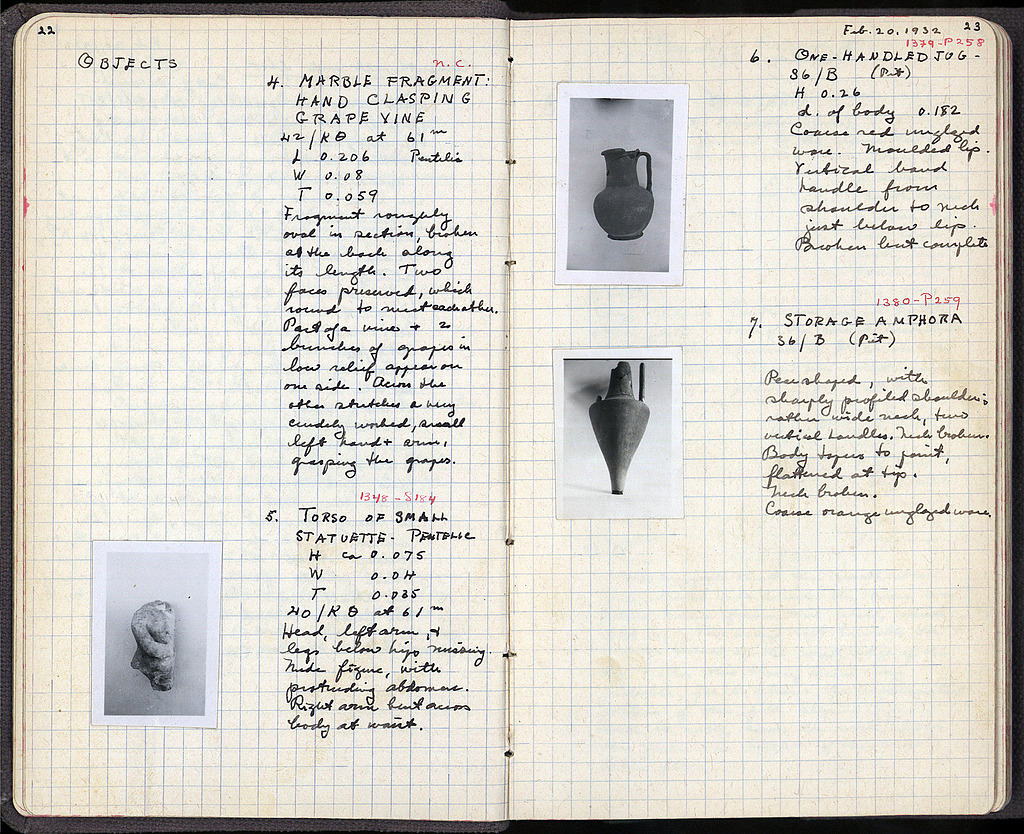 22
OBJECTS
n.c.
4. MARBLE FRAGMENT:
HAND CLASPING
GRAPE VINE
42/ΚΘ at 61m
L 0.206 Pentelic
W 0.08
T 0.059
Fragment roughly
oval in section, broken
at the back along
its length. Two
faces preserved, which
round to meet each other.
Part of a vine + 2
bunches of grapes in
low relief appear on
one side. Across the
other stretches a very
crudely worked, small
left hand + arm,
grasping the grapes.
1348-S184
5. TORSO OF SMALL
STATUETTE - PENTELIC
H ca 0.075
W 0.04
T 0.035
40/ΚΘ at 61m
Head, left arm, +
legs below hips missing.
Nude figure, with
protruding abdomen.
Right arm bent across
body at waist.
Feb. 20, 1932 23
1379-P258
6. ONE-HANDLED JUG -
36/B (Pit)
H 0.26
d. of body 0.182
Coarse red unglazed
ware. Moulded lip.
Vertical band
handle from
shoulder to neck
just below lip.
Broken but complete
1380-P259
7. STORAGE AMPHORA
36/B (Pit)
Pear shaped, with
sharply profiled shoulder;
rather wide neck, two
vertical handles. Neck broken.
Body tapers to point,
flattened at tip.
Neck broken.
Coarse orange unglazed ware.